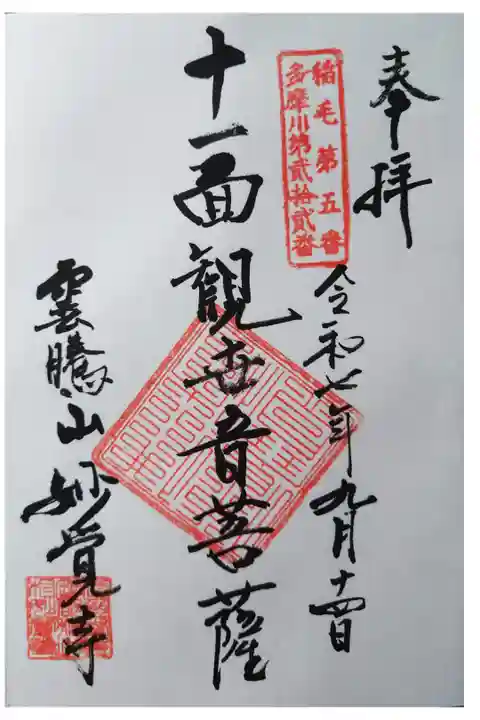 奉拝
稲毛第五番
多摩川第弐拾弐番
令和七年九月十四日
十一面観世音菩薩
雲騰山妙覚寺